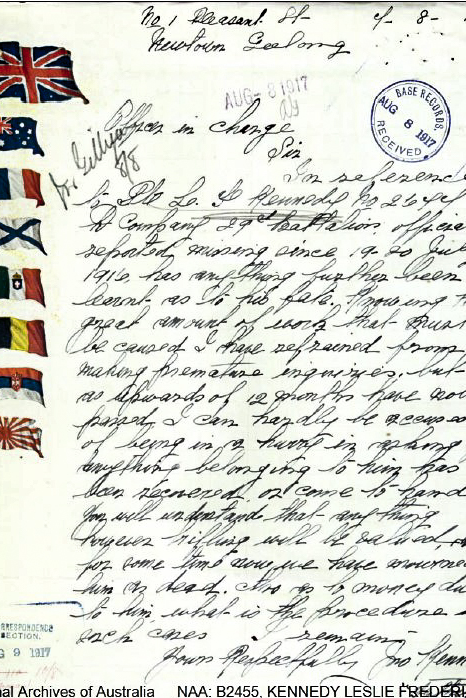 No 1 Pleasant St 4/- 8 -
Newtown Geelong
AUG - 8 1917
BASE RECORDS.
AUG 8 1917
RECEIVED
Officer in charge
8/8
Sir
In reference
to Pte L. F Kennedy No
A Company 29th Battalion official
reported missing since
1916, has anything further been
learnt as to his fate. Knowing
great amount of work that must
be caused I have refrained from
making premature inquiries. but
as upwards of 12 months have now
passed I can hardly be accused
of being in a hurry in asking
anything belonging to him has
been recovered or come to hand
You will understand that anything
however trifling will be valued,
for some time now we have mourned
him as dead. Also as to money du
to him what is the procedure
such cases remain
Yours Respectfully Jno Kenn
RRESPONDENCE
SECTION.
G 9 1917
nal Archives of Australia NAA: B2455, KENNEDY LESLIE FREDERI